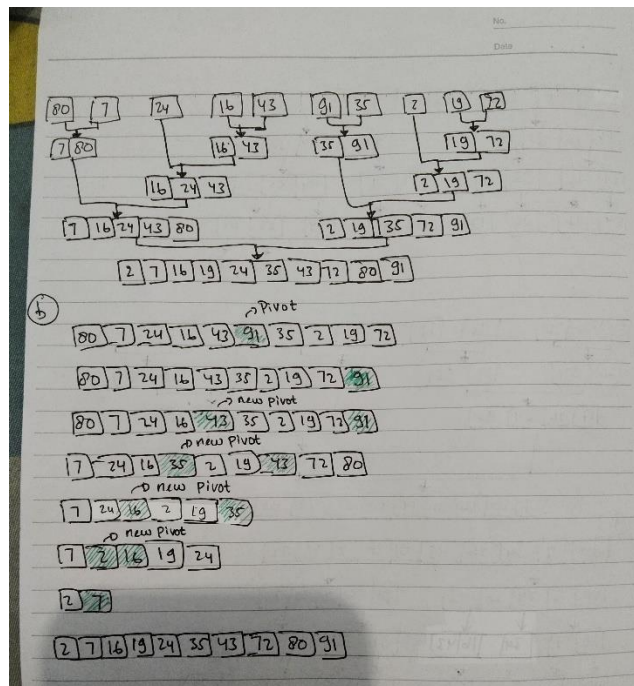 No.
Date
80 7 24 16 43 91 35 2 19 72
7 80 16 43 35 91 19 72
16 24 43 2 19 72
7 16 24 43 80 2 19 35 72 91
2 7 16 19 24 35 43 72 80 91
b
Pivot
80 7 24 16 43 91 35 2 19 72
80 7 24 16 43 35 2 19 72 91
new pivot
80 7 24 16 43 35 2 19 72 91
new pivot
7 24 16 35 2 19 43 72 80
new pivot
7 24 16 2 19 35
new pivot
7 2 16 19 24
2 7
2 7 16 19 24 35 43 72 80 91